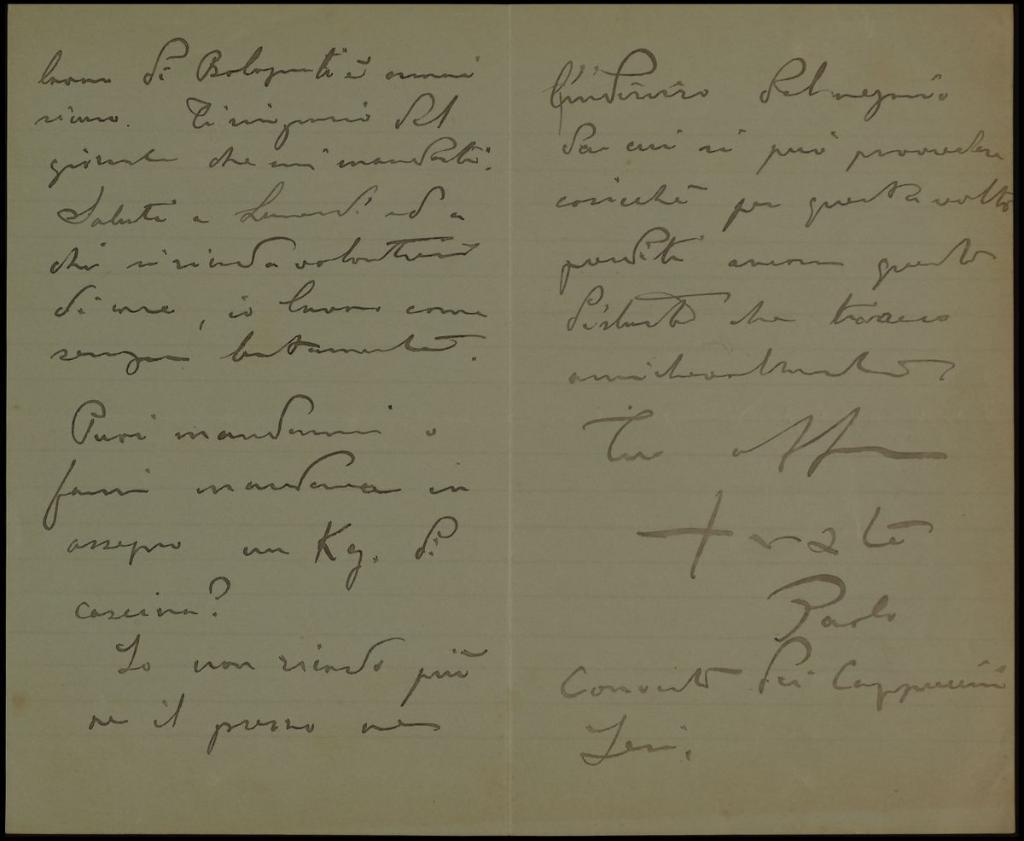 lavoro di Bolognetti è ormai
sicuro. Ti ringrazio del
giornale che mi mandasti.
Saluti a Lunardi ed a
chi si ricorda volentieri
di me, io lavoro come
sempre lentamente.
Puoi mandarmi o
farmi mandare in
assegno un Kg. di
caseina?
Io non ricordo più
ne il prezzo ne
l'indirizzo del negozio
da cui si può provvedere
cosicchè per questa volta
perditi ancora questo
disturbo che
amichevolmente
Tuo aff
frate
Paolo
Convento dei Cappuccini
Jesi.